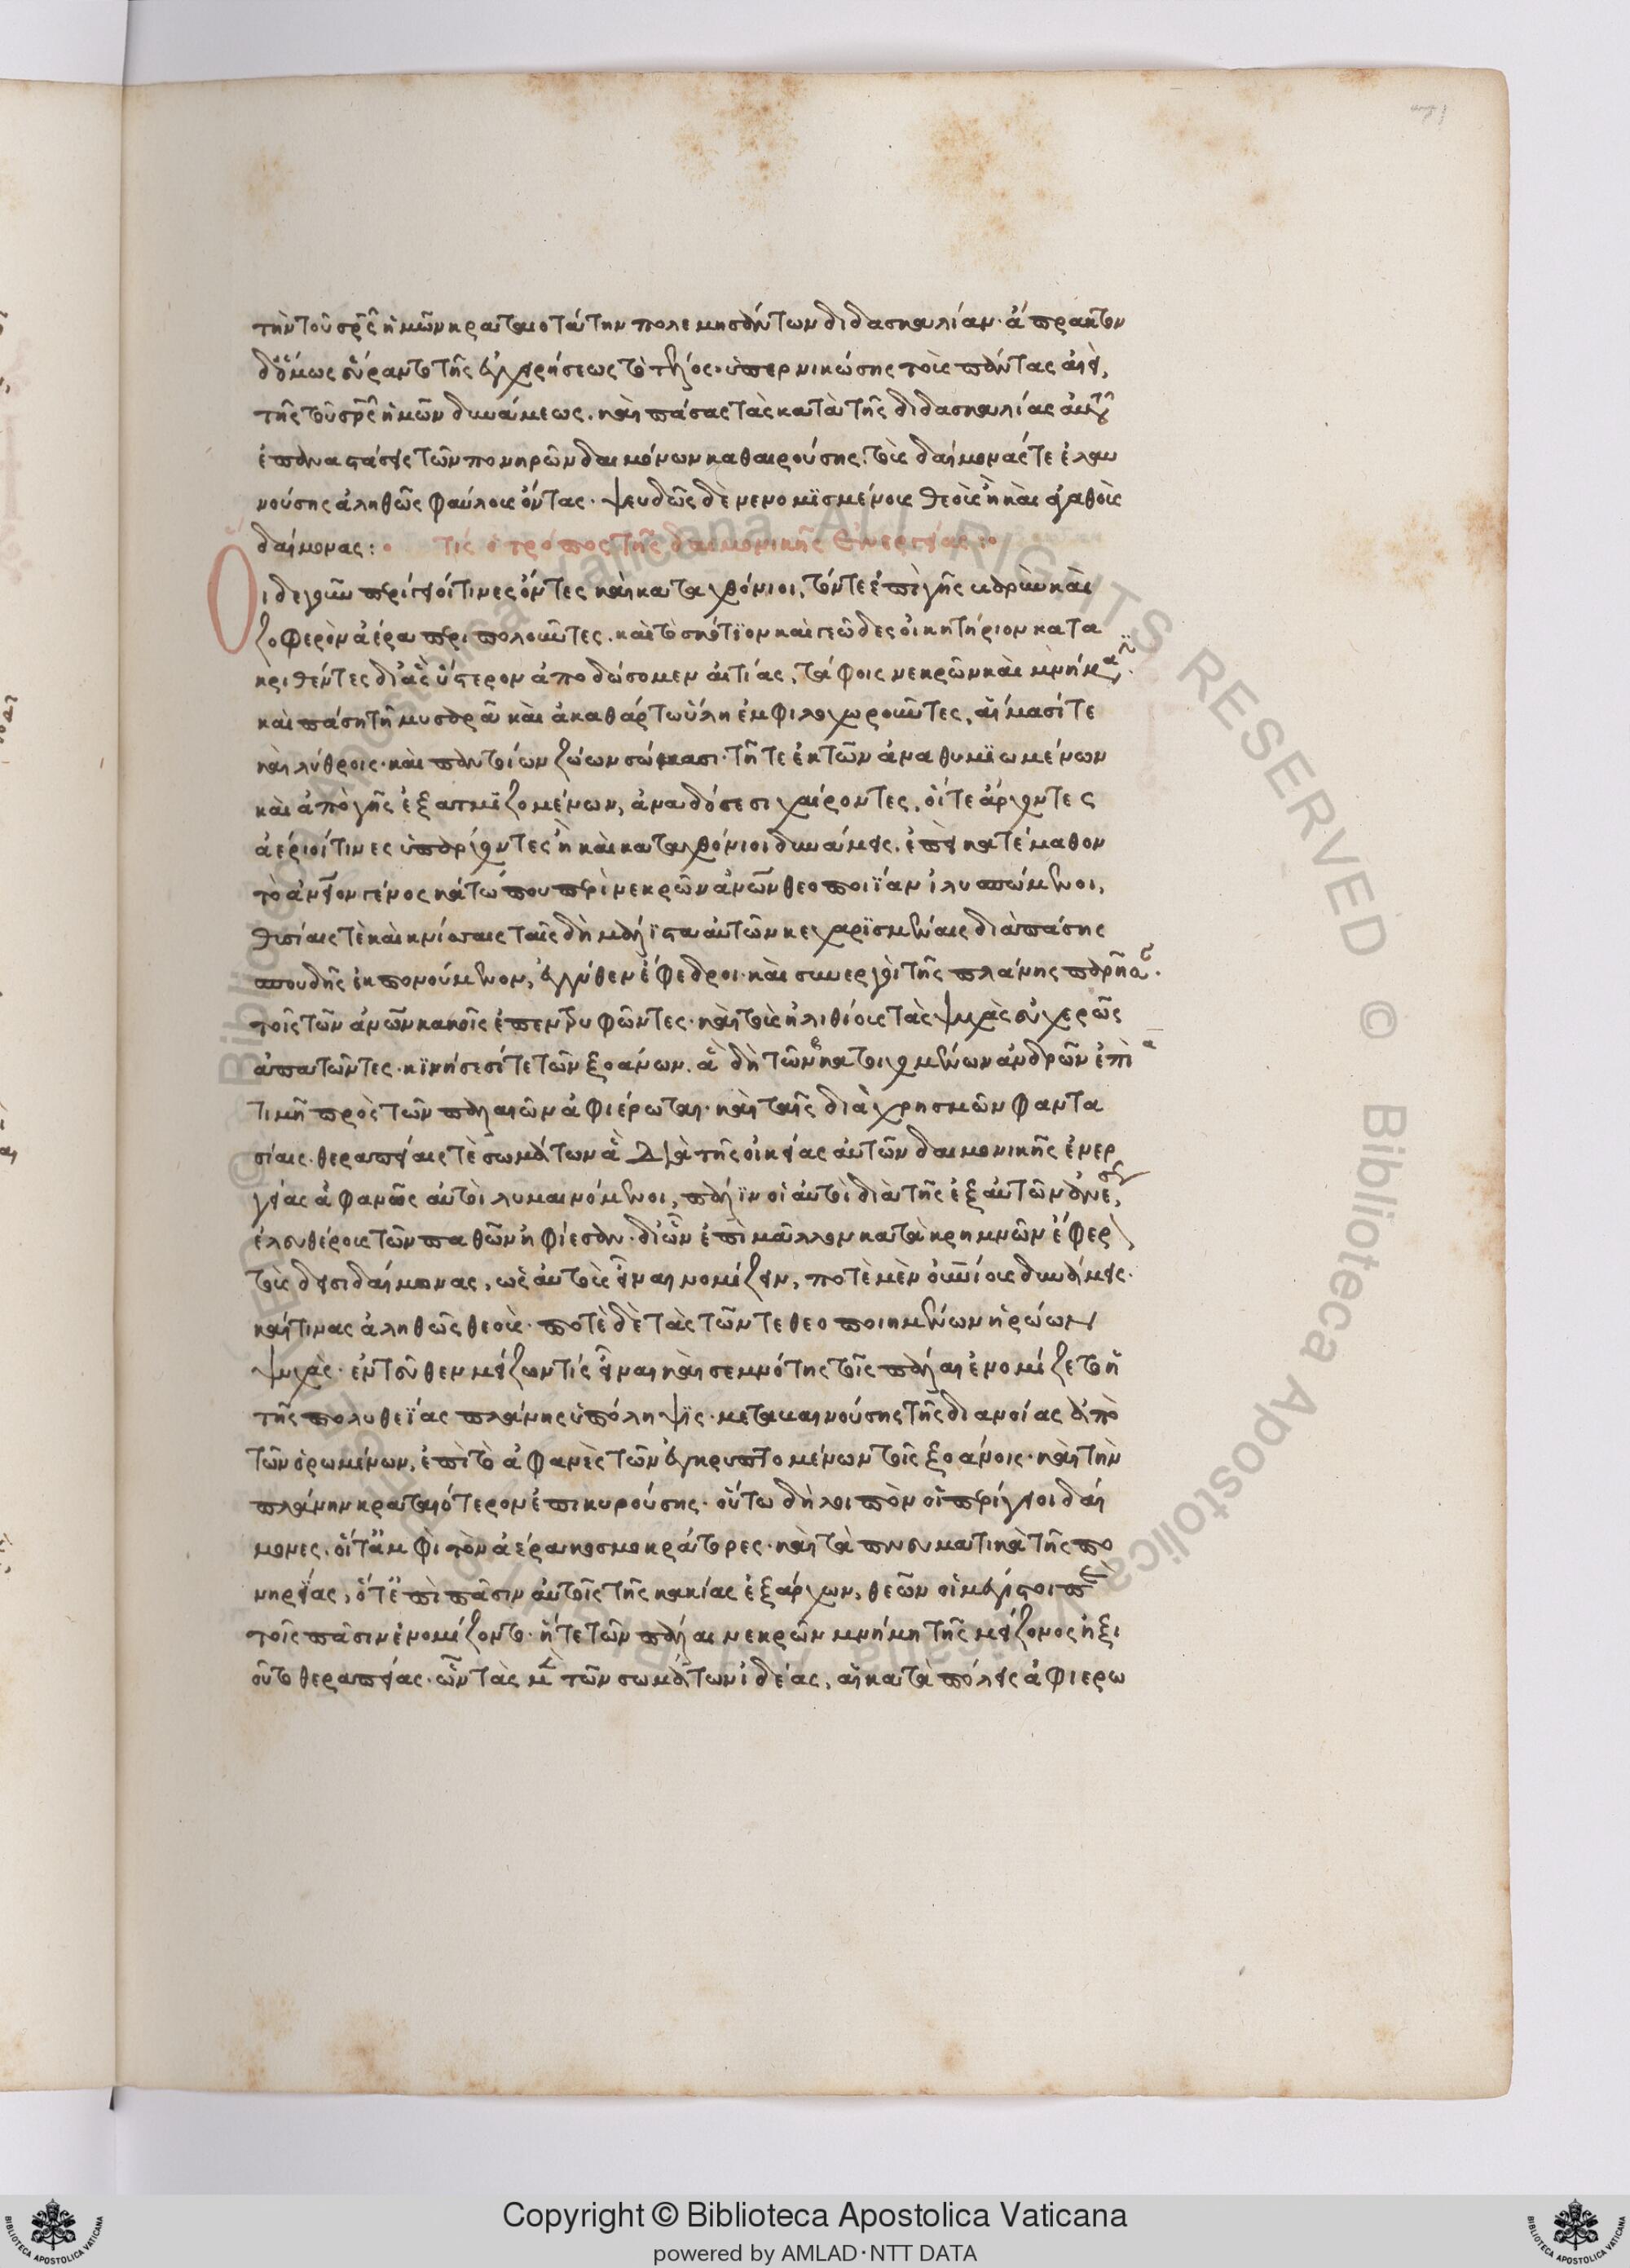 τὴν τοῦ σρ̅ς ἡμῶν κραταιοτάτην πολεμησάντων διδασκαλίαν· ἄπρακτον
δ' ὅμως εὕραντο τῆς ἐγχειρήσεως τὸ τέλος· ὑπερνικώσης τοὺς πάντας ἀεὶ,
τῆς τοῦ σρ̅ς ἡμῶν δυνάμεως. καὶ πάσας τὰς κατὰ τῆς διδασκαλίας αὐτοῦ
ἐπαναστάσεις τῶν πονηρῶν δαιμόνων καθαιρούσης. τοὺς δαίμονάς τε ἐλαυ
νούσης ἀληθῶς φαύλους ὄντας· ψευδῶς δὲ νενομϊσμένους θεοὺς ἢ καὶ ἀγαθοὺς
δαίμονας:
τίς ὁ τρόπος τῆς δαιμονικῆς ἐνεργείας:
Οἱ δὲ γοῦν περίγειοί τινες ὄντες καὶ καταχθόνιοι, τόν τε ἐπὶ γῆς βαρὺν καὶ
ζοφερὸν ἀέρα περιπολοῦντες. καὶ τὸ σκότϊον καὶ γεῶδες οἰκητήριον κατα
κριθέντες δι' ἃς ὕστερον ἀποδώσομεν αἰτίας, τάφοις νεκρῶν καὶ μνήμασι
καὶ πάσῃ τῇ μυσαρᾷ καὶ ἀκαθάρτω ὕλη ἐμφιλοχωροῦντες, αἵμασί τε
καὶ λύθροις· καὶ παντοίων ζώων σώμασι· τῇ τε ἐκ τῶν ἀναθυμϊωμένων
καὶ ἀπὸ γῆς ἐξατμϊζομένων, ἀναδόσεσι χαίροντες, οἵ τε ἄρχοντες
ἀέριοί τινες ὑπάρχοντες ἢ καὶ καταχθόνιοι δυνάμεις. ἐπεὶ κατέμαθον
τὸ ἀνεῖον γένος κάτω που περὶ νεκρῶν ἀνῶν θεοποιΐαν ἰλυσπώμενοι,
θυσίαις τὲ καὶ κνίσσαις ταῖς δὴ μάλϊστα αὐτῶν κεχαρϊσμέναις διὰ πάσης
σπουδῆς ἐκπονούμενον, ἐγγύθεν ἔφεδροι καὶ συνεργοὶ τῆς πλάνης παρῆσαν.
τοῖς τῶν ἀνῶν κακοῖς ἐπεντρυφῶντες· καὶ τοὺς ἠλιθίους τὰς ψυχὰς εὐχερῶς
ἀπατῶντες· κϊνήσεσί τε τῶν ξοάνων. ἃ δὴ τῶν κατοιχομένων ἀνδρῶν ἐπὶ
τιμῇ πρὸς τῶν παλαιῶν ἀφιέρωται· καὶ ταῖς διὰ χρησμῶν φαντα
σίαις. θεραπείαις τὲ σωμάτων ἃ διὰ τῆς οἰκείας αὐτῶν δαιμονικῆς ἐνερ
γείας ἀφανῶς αὐτοὶ λυμαινόμενοι, πάλϊν οἱ αὐτοὶ διὰ τῆς ἐξ αὐτῶν ἀνέσεως,
ἐλευθέρους τῶν παθῶν ἠφίεσαν· δι' ὧν ἐπὶ μᾶλλον κατὰ κρημνῶν ἔφερον
τοὺς δεισιδαίμονας, ὡς αὐτοὺς εἶναι νομίζειν, ποτὲ μὲν οὐνίους δυνάμεις.
καί τινας ἀληθῶς θεούς· ποτὲ δὲ τὰς τῶν τεθεοποιημένων ἡρώων
ψυχὰς· ἐντεῦθεν μείζων τίς εἶναι καὶ σεμνότης τοῖς πάλαι ἐνομίζετο ἡ
τῆς πολυθεΐας πλάνης ὑπόληψϊς· μεταβαινούσης τῆς διανοίας ἀπὸ
τῶν ὁρωμένων, ἐπὶ τὸ ἀφανὲς τῶν ἐγκρυπτομένων τοῖς ξοάνοις· καὶ τὴν
πλάνην κραταιότερον ἐπικυρούσης· οὕτω δὴ λοιπὸν οἱ περίγειοι δαί
μονες. οἵ τ' ἀμφὶ τὸν ἀέρα κοσμοκράτορες· καὶ τὰ πνευματικὰ τῆς πο
νηρίας, ὅ τ' ἐπὶ πᾶσιν αὐτοῖς τῆς κακίας ἐξάρχων, θεῶν οἱ μέγιστοι παρὰ
τοῖς πᾶσιν ἐνομίζοντο· ἥ τε τῶν πάλαι νεκρῶν μνήμη τῆς μείζονος ἠξι
οῦτο θεραπείας· ὧν τὰς μὲν τῶν σωμάτων ἰδέας, αἱ κατὰ πόλεις ἀφιερω